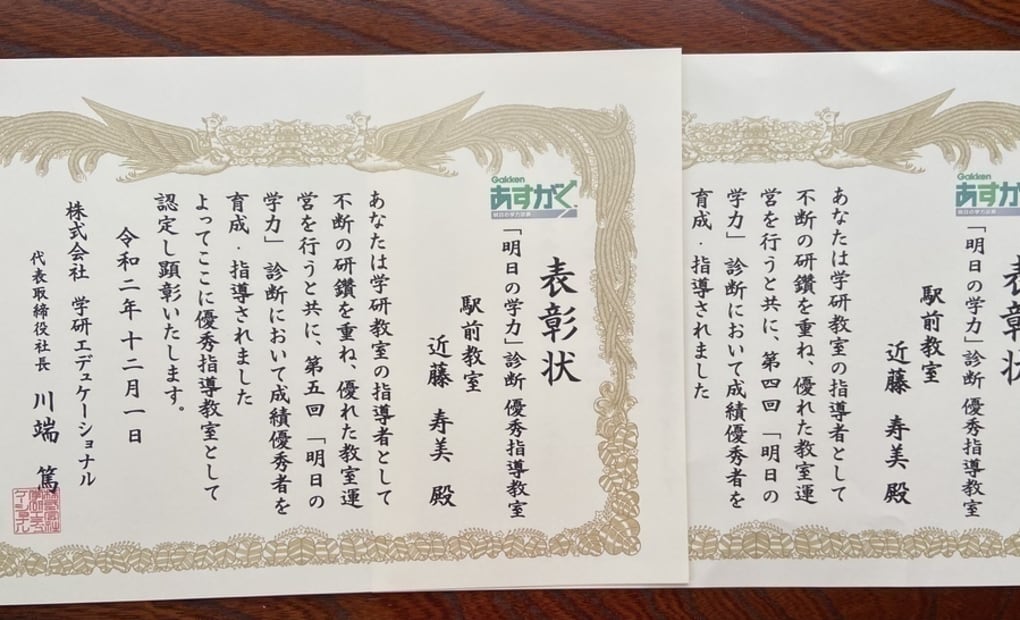 Gakken
あすがく
明日の学力診断
表彰状
「明日の学力」診断 優秀指導教室
駅前教室
近藤 寿美 殿
あなたは学研教室の指導者として
不断の研鑽を重ね、優れた教室運
営を行うと共に、第五回「明日の
学力」診断において成績優秀者を
育成・指導されました
よってここに優秀指導教室として
認定し顕彰いたします。
令和二年十二月一日
株式会社 学研エデュケーショナル
代表取締役社長 川端 篤
Gakken
あすが
明日の学力診断
表彰状
「明日の学力」診断 優秀指導教室
駅前教室
近藤 寿美 殿
あなたは学研教室の指導者として
不断の研鑽を重ね、優れた教室運
営を行うと共に、第四回「明日の
学力」診断において成績優秀者を
育成・指導されました